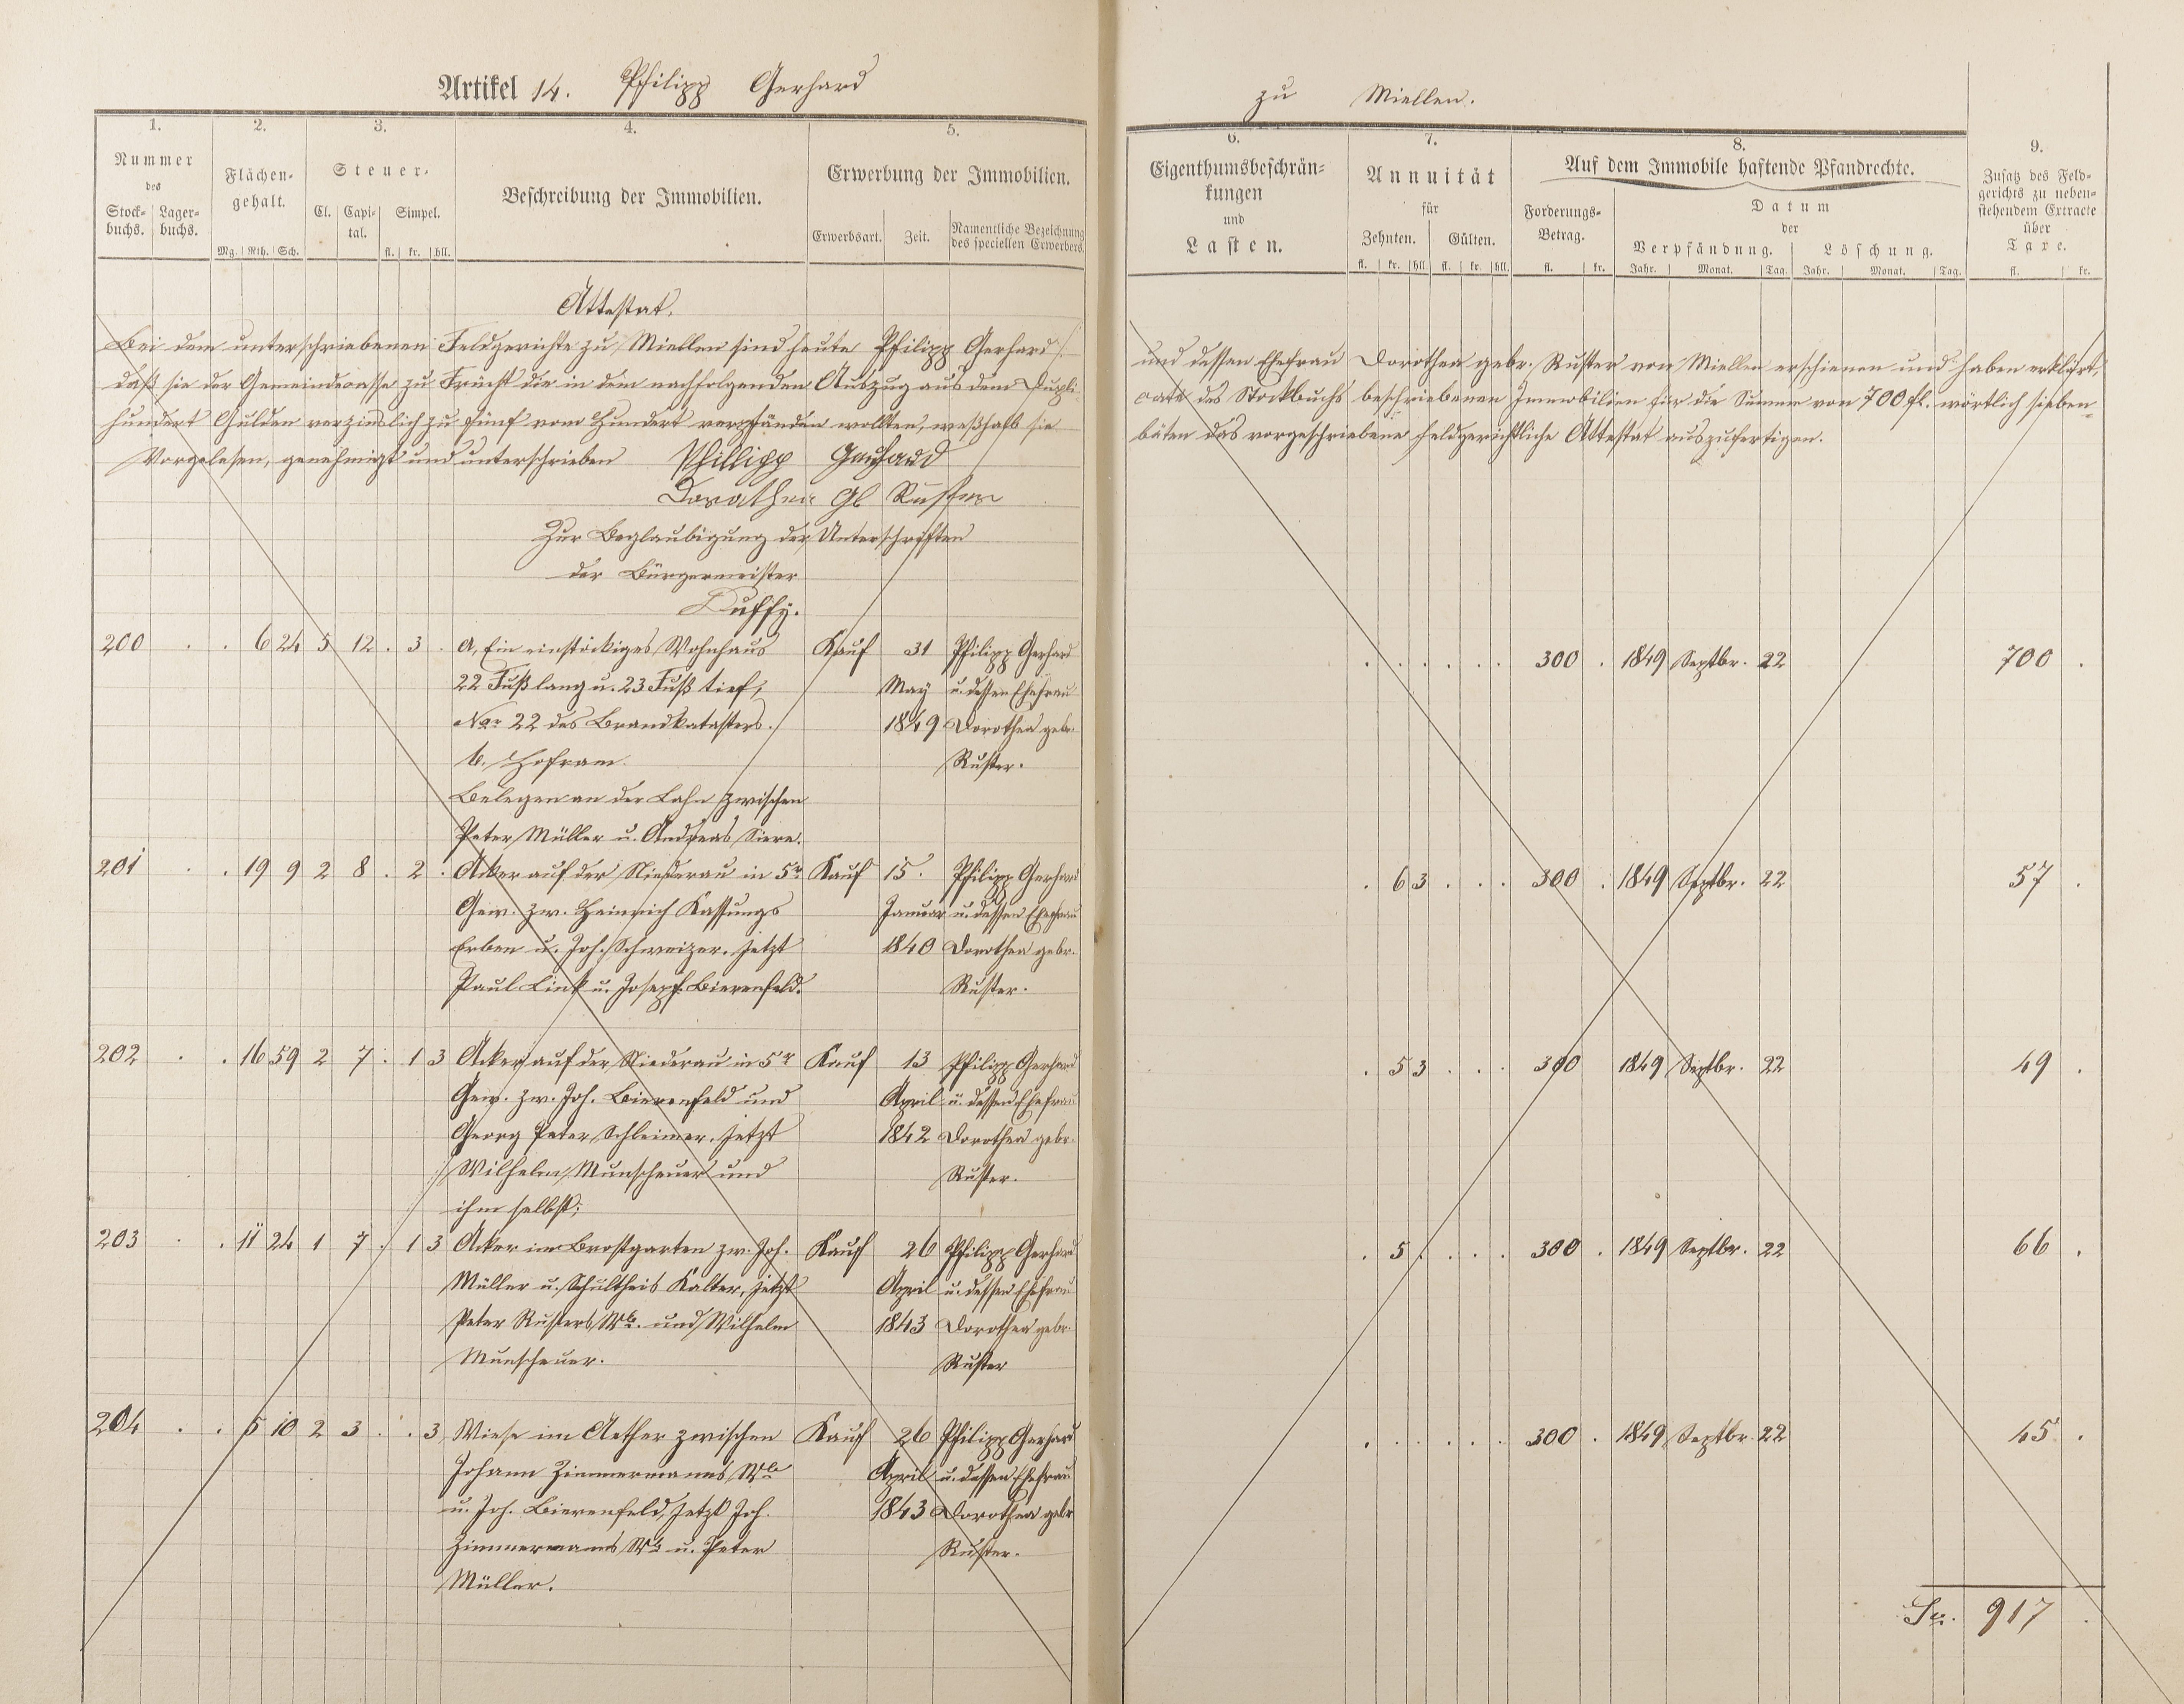 Artikel 14. Philipp Gerhard zu Miellen.
1. 2. 3. 4. 5. 6. 7. 8. 9.
Nummer des
Stock-buchs. Lager-buchs.
Flächen-gehalt.
Mg. Rth. Sch.
Steuer-
Cl. Capi-tal. Simpel.
fl. kr. hll.
Beschreibung der Immobilien.
Erwerbung der Immobilien.
Erwerbsart. Zeit. Namentliche Bezeichnung des speciellen Erwerbers.
Eigenthumsbeschrän-
kungen
und
Lasten.
Annuität
für
Zehnten. Gülten.
fl. kr. hll. fl. kr. hll.
Auf dem Immobile haftende Pfandrechte.
Forderungs-
Betrag.
fl. kr.
Datum
der
Verpfändung. Löschung.
Jahr. Monat. Tag. Jahr. Monat. Tag.
Zusatz des Feld-
gerichts zu neben-
stehendem Extracte
über
Taxe.
fl. kr.
Attestat.
Bei dem unterschriebenen Feldgerichte zu Miellen sind heute Philipp Gerhard und dessen Ehefrau Dorothea gebr. Ruster von Miellen erschienen und haben erklärt,
daß sie der Gemeindecasse zu Frücht die in dem nachfolgenden Auszug aus dem Dupli- cate des Stockbuchs beschriebenen Immobilien für die Summe von 700 fl. wörtlich sieben
hundert Gulden verzinslich zu fünf vom Hundert verpfänden wollten, weßhalb sie bäten das vorgeschriebene feldgerichtliche Attestat auszufertigen.
Vorgelesen, genehmigt und unterschrieben Phillipp Gerhard
Dorathea Ruster
Zur Beglaubigung der Unterschriften
der Bürgermeister
Duffy.
200 . . 6 24 5 12 . 3 . a, Ein einstöckiges Wohnhaus Kauf 31 Philipp Gerhard . . . . . . 300 . 1849 Septbr. 22 700 .
22 Fuß lang u. 23 Fuß tief, May u. dessen Ehefrau
Nor 22 des Brandkatasters. 1849 Dorothea gebr.
b. Hofram. Ruster.
Belegen an der Lahn zwischen
Peter Müller u. Andreas Siere.
201 . . 19 9 2 8 . 2 . Acker auf der Niederau in 5r Kauf 15. Philipp Gerhard . 6 3 . . . 300 . 1849 Septbr. 22 57 .
Gew. zw. Heinrich Kassungs Januar u. dessen Ehefrau
Erben u. Joh. Schweizer. jetzt 1840 Dorothea gebr.
Paul Link u. Joseph Bierenfeld. Ruster.
202 . . 16 59 2 7 . 1 3 Acker auf der Niederau in 5r Kauf 13 Philipp Gerhard . 5 3 . . . 300 1849 Septbr. 22 49 .
Gew. zw. Joh. Bierenfeld und April u. dessen Ehefrau
Georg Peter Schleimer. jetzt 1842 Dorothea gebr.
Wilhelm Munscheuer und Ruster.
ihm selbst;
203 . . 11 24 1 7 . 1 3 Acker im Brostgarten zw. Joh. Kauf 26 Philipp Gerhard . 5 . . . . 300 . 1849 Septbr. 22 66 .
Müller u. Schultheis Kalter, jetzt April u. dessen Ehefrau
Peter Rusters Wb. und Wilhelm 1843 Dorothea gebr.
Munscheuer. Ruster
204 . . 5 10 2 3 . . 3 Wiese im Aether zwischen Kauf 26 Philipp Gerhard . . . . . . 300 . 1849 Septbr. 22 45 .
Johann Zimmermanns Wb April u. dessen Ehefrau
u. Joh. Bierenfeld, jetzt Joh. 1843 Dorothea gebr
Zimmermanns Wb u. Peter Ruster.
Müller.
Sa. 917 .